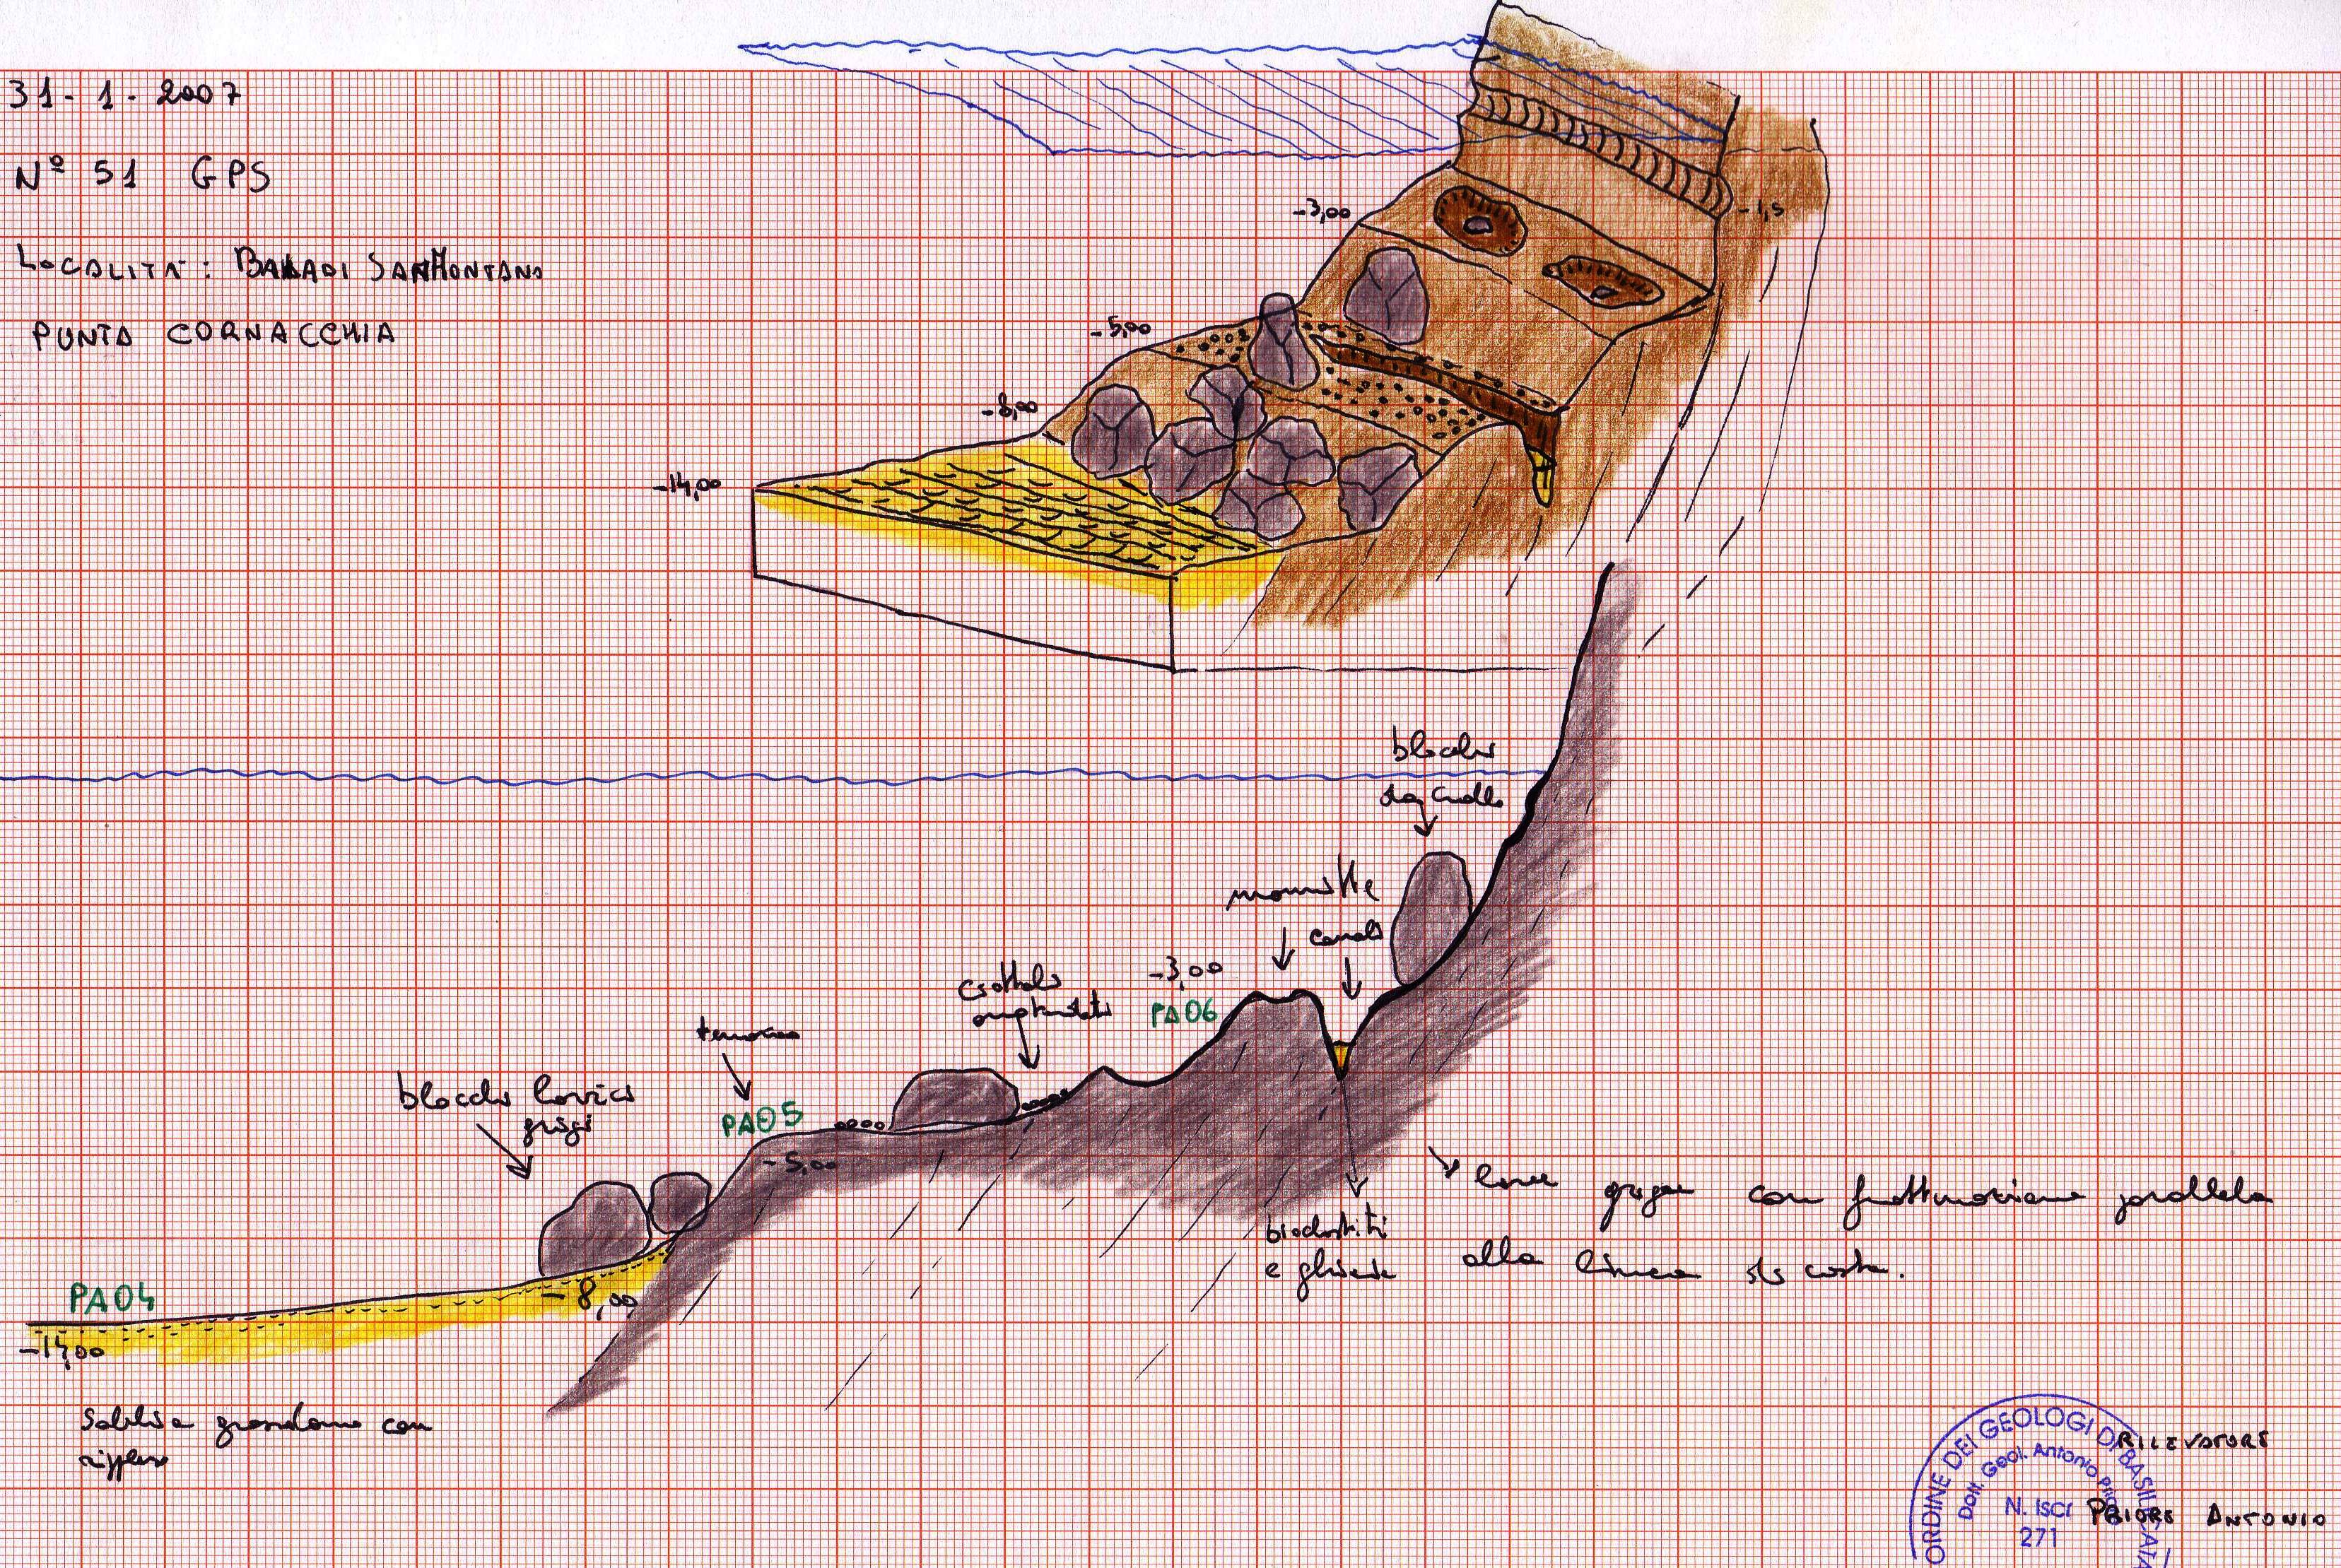 31-1-2007
Nº 51 GPS
LOCALITÀ: BAIA DI SAN MONTANO
PUNTA CORNACCHIA
-1,5
-3,00
-5,00
-8,00
-14,00
blocchi
di crollo
marmitte
canale
-3,00
PA06
ciottoli
terrazzo
PA05
-5,00
blocchi lavici
grigi
PA04
-14,00
-8,00
bioclastiti
e ghiaie
lave grigie con fratturazione parallela
alla linea di costa.
Sabbia grossolana con
ripples
ORDINE DEI GEOLOGI DI BASILICATA
Dott. Geol. Antonio
N. ISCR
271
RILEVATORE
PRIORE ANTONIO